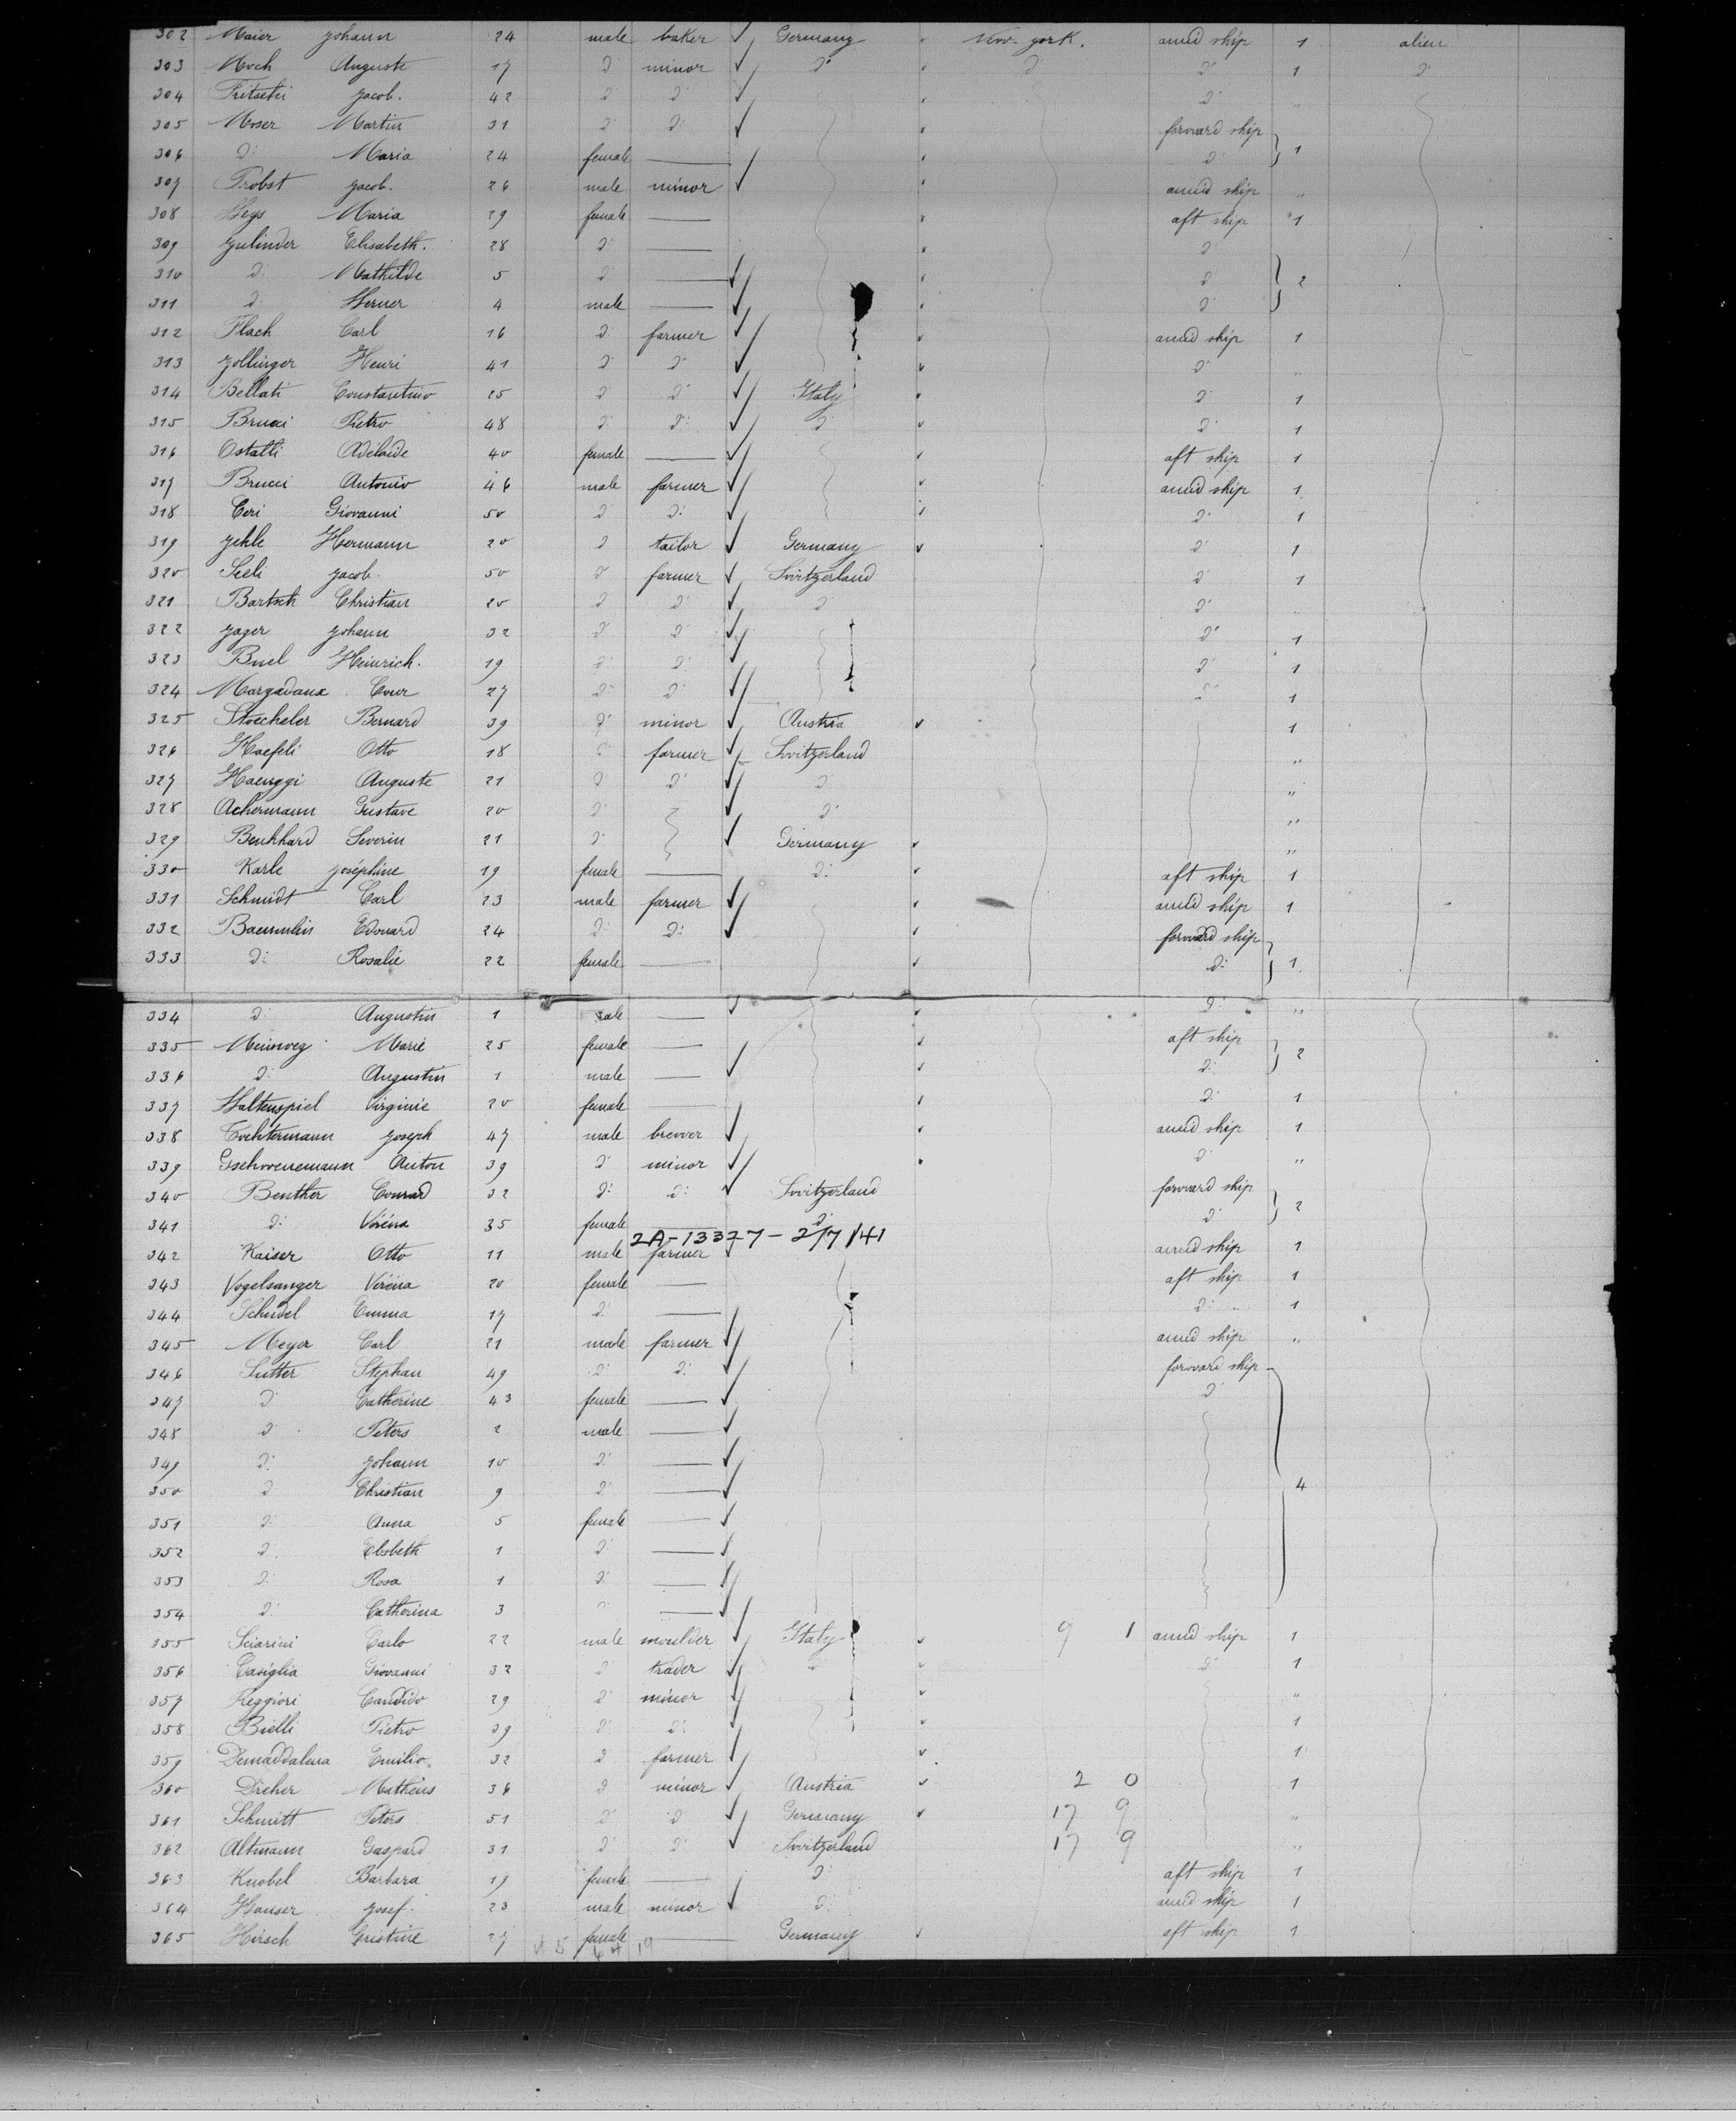 302 Maier Johann 24 male baker Germany New-york. amid ship 1 alien
303 Moch Auguste 17 d° minor d° d° d° 1 d°
304 Fritschi Jacob. 42 d° d° d° "
305 Moser Martin 31 d° d° forward ship
306 d: Maria 24 female — d° 1
307 Probst Jacob. 26 male minor amid ship "
308 Wegs Maria 29 female — aft ship 1
309 Gulinder Elisabeth. 28 d° — d°
310 d: Mathilde 5 d° — d° 2
311 d: Werner 4 male — d°
312 Flach Carl 16 d° farmer amid ship 1
313 Zollinger Henri 41 d° d° d° "
314 Bellati Constantino 25 d° d° Italy d° 1
315 Brucci Pietro 48 d° d: d° d° 1
316 Ostalli Adélaide 40 female — aft ship 1
317 Brucci Antonio 46 male farmer amid ship 1
318 Ceri Giovanni 50 d° d: d° 1
319 Jehle Hermann 20 d° tailor Germany d° 1
320 Seeli Jacob. 50 d° farmer Switzerland d° 1
321 Bartsch Christian 20 d° d° d° d° "
322 Jager Johann 32 d° d° d° 1
323 Buel Heinrich. 19 d: d: d° 1
324 Margadaux Cour 27 d° d° d° 1
325 Stoecheler Bernard 39 d° minor Austria 1
326 Haefeli Otto 18 d° farmer Switzerland "
327 Haenggi Auguste 21 d° d° d° "
328 Achermann Gustave 20 d° d° "
329 Benkhard Severin 21 d° Germany "
330 Karle Joséphine 19 female — d: aft ship 1
331 Schmidt Carl 23 male farmer amid ship 1
332 Baeumlin Edouard 24 d: d: forward ship
333 d: Rosalie 22 female — d: 1
334 d: Augustin 1 male — d° "
335 Meinweg Marie 25 female — aft ship
336 d: Augustin 1 male — d: 2
337 Haltenspiel Virginie 20 female — d: 1
338 Tochtermann Joseph 47 male brewer amid ship 1
339 Gschwenemann Anton 39 d° minor d° "
340 Benther Conrad 32 d: d: Switzerland forward ship
341 d: Véréna 35 female — d° d° 2
2A-13327 - 2/7/41
342 Kaiser Otto 11 male farmer amid ship 1
343 Vogelsanger Véréna 20 female — aft ship 1
344 Schidel Emma 17 d: — d: 1
345 Meyer Carl 21 male farmer amid ship "
346 Sutter Stephan 49 d° d: forward ship
347 d° Catherine 43 female — d°
348 d° Peters 2 male —
349 d: Johann 10 d: —
350 d° Christian 9 d° — 4
351 d: Anna 5 female —
352 d. Elisbeth 1 d° —
353 d: Rosa 1 d: —
354 d: Catherina 3 d: —
355 Sciarini Carlo 22 male moulder Italy 9 1 amid ship 1
356 Casiglia Giovanni 32 d° trader d° d° 1
357 Reggiori Candido 29 d° minor "
358 Bielli Pietro 39 d° d° 1
359 Demaddalena Emilio. 32 d° farmer 1
360 Dreher Mathéus 36 d° minor Austria 2 0 1
361 Schmitt Peters 51 d° d° Germany 17 9 "
362 Altmann Gaspard 31 d° d° Switzerland 17 9 "
363 Knobel Barbara 19 female — d: aft ship 1
364 Hauser Josef. 23 male minor d: amid ship 1
365 Hirsch Cristine 27 female — Germany aft ship 1